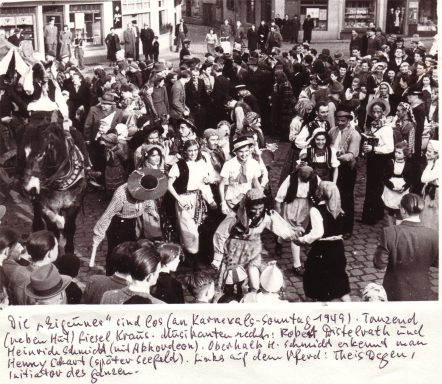 Die "Zigeuner" sind los (an Karnevals-Sonntag 1949). Tanzend
(neben Hut) Liesel Kraus. Musikanten rechts: Robert Distelrath und
Heinrich Schmidt (mit Akkordeon). Oberhalb H. Schmidt erkennt man
Henny Eckart (später Seefeld). Links auf dem Pferd: Theis Degen,
Initiator des Ganzen.